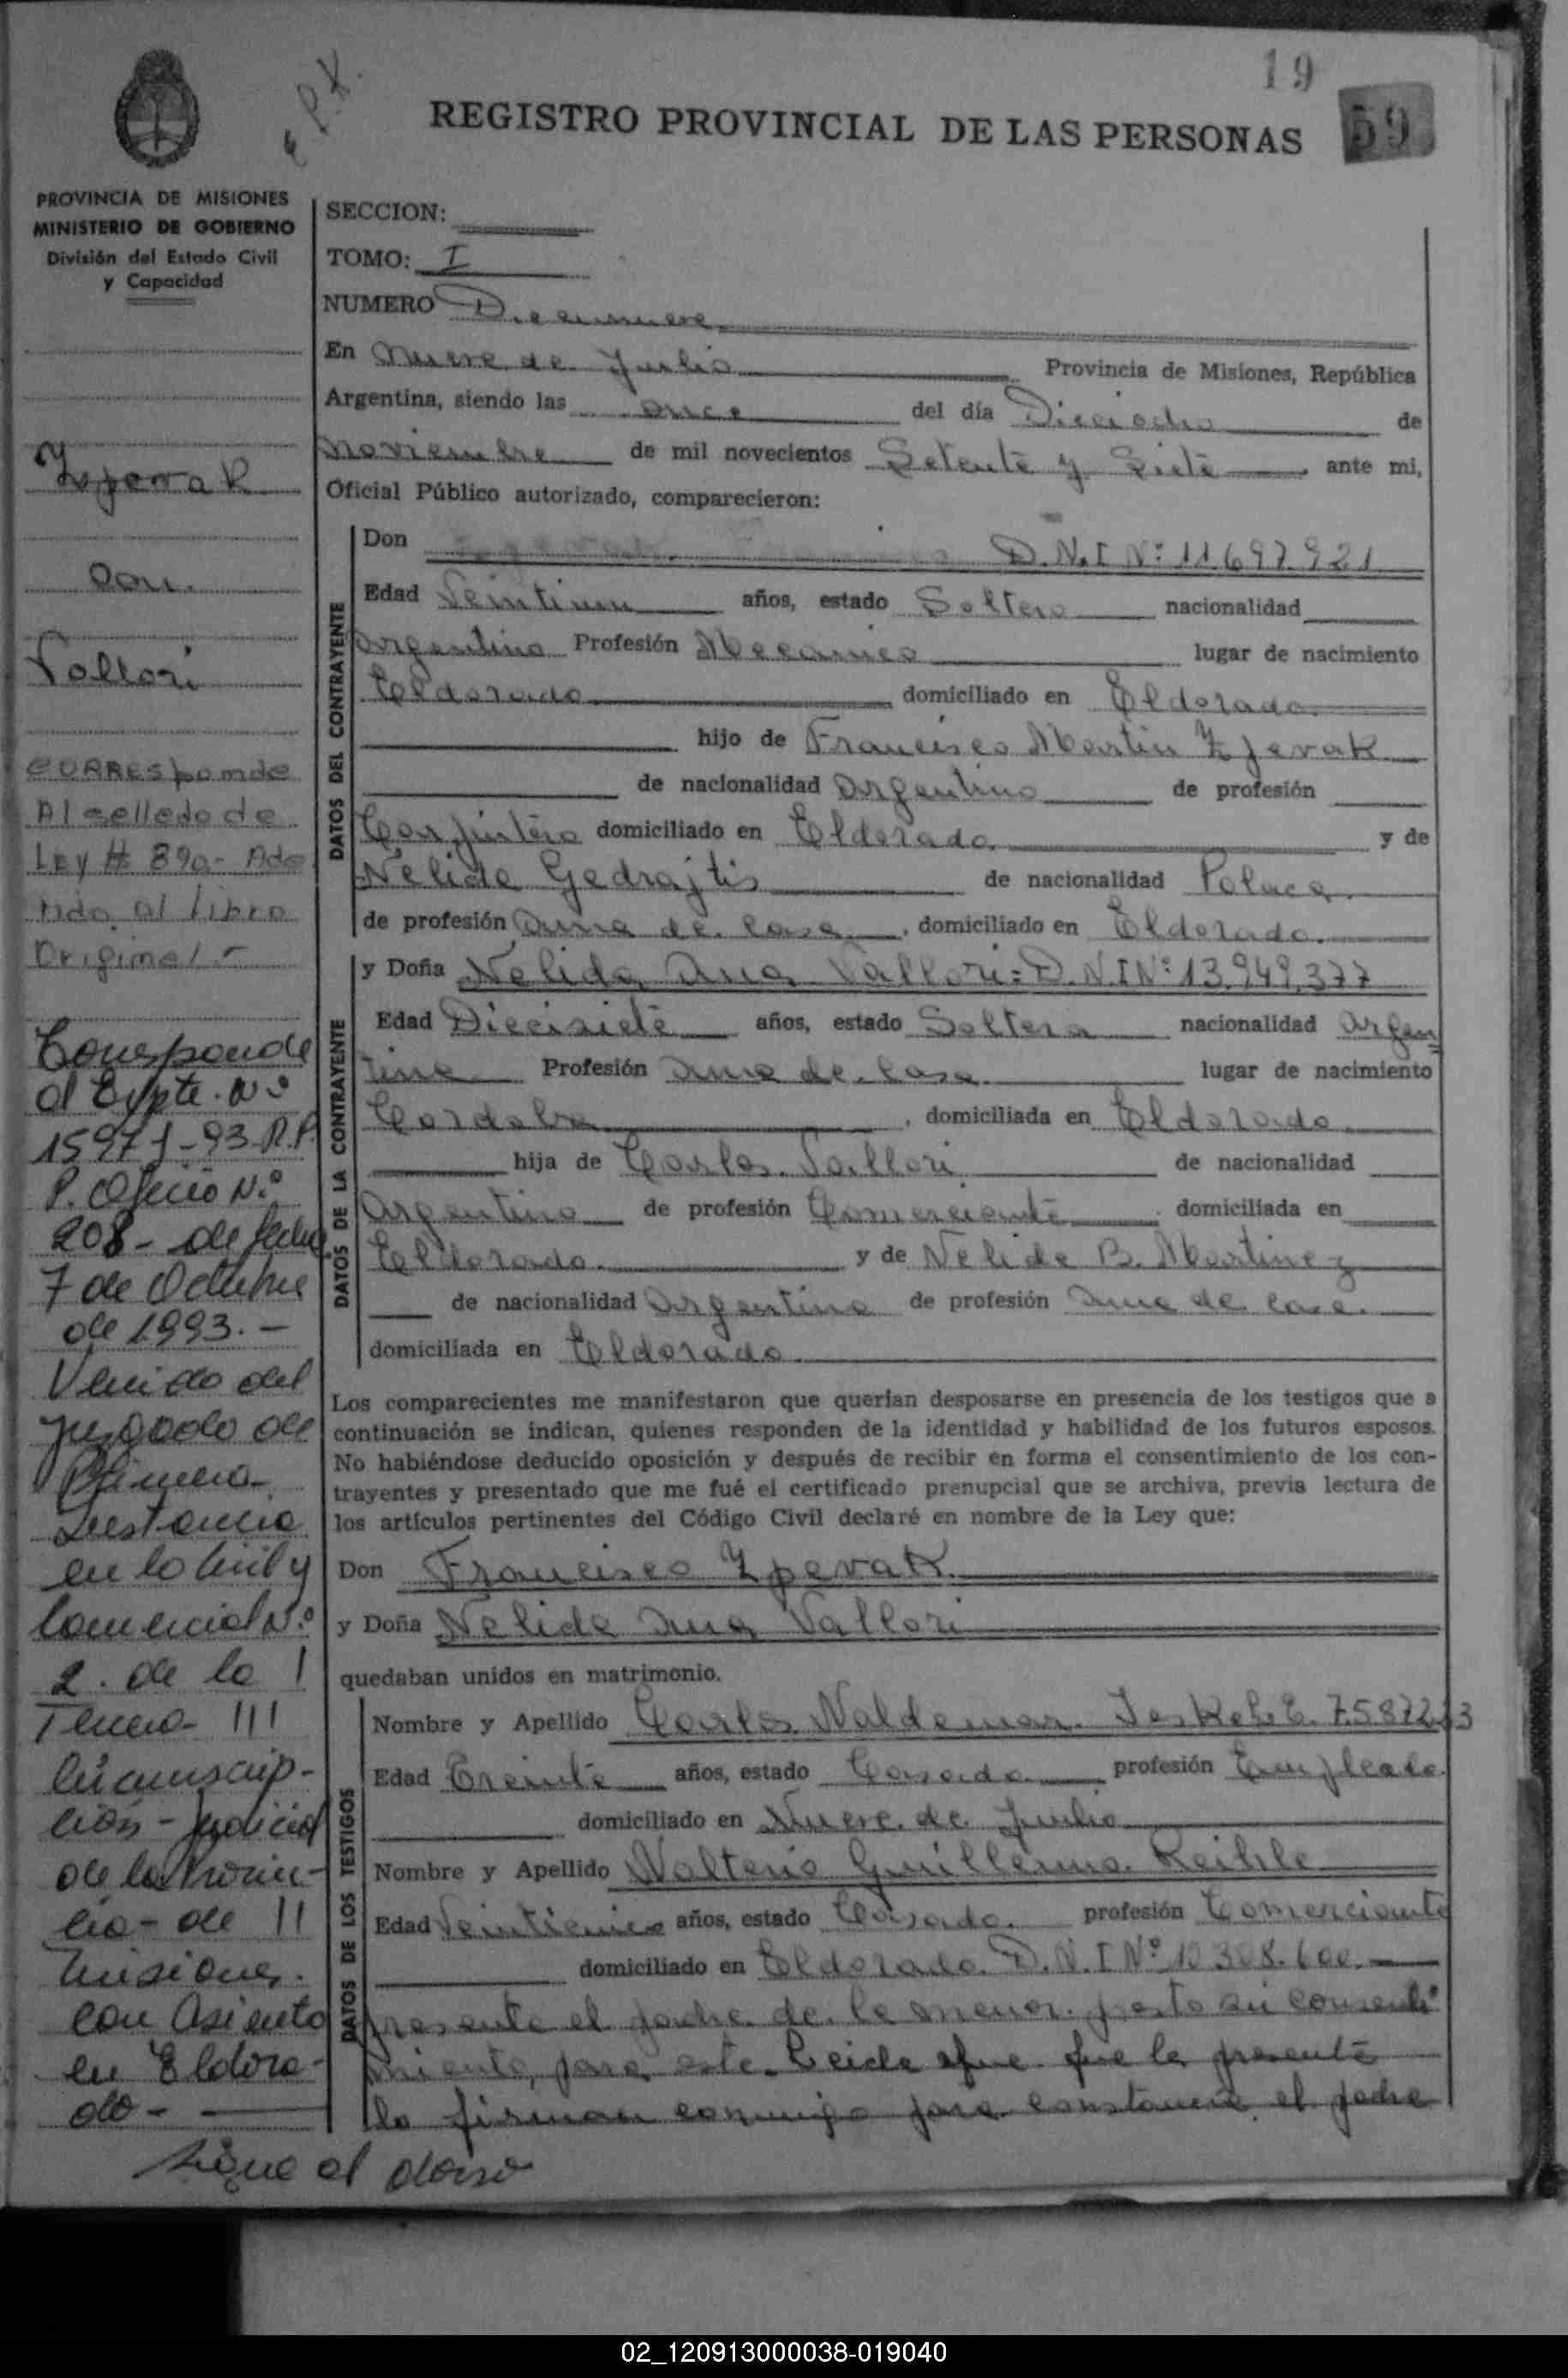 19
REGISTRO PROVINCIAL DE LAS PERSONAS
59
PROVINCIA DE MISIONES
MINISTERIO DE GOBIERNO
División del Estado Civil
y Capacidad
con
Vallori
CORResponde
Al sellado de
Ley # 890- Ado
al Libro
Original -
Corresponde
al Expte. Nº
P. Oficio N.º
208 - de fecha
7 de Octubre
de 1993. -
Venido del
Juzgado de
Primera
Instancia
en lo Civil y
Comercial N.º
2. de la
Tercera
Circunscrip-
ción - Judicial
de la Provin-
cia - de
Misiones.
con Asiento
en Eldora-
do -
Sigue al dorso
SECCION:
TOMO: I
NUMERO Diecinueve
En Nueve de Julio Provincia de Misiones, República
Argentina, siendo las once del día Dieciocho de
Noviembre de mil novecientos Setenta y Siete ante mi,
Oficial Público autorizado, comparecieron:
DATOS DEL CONTRAYENTE
Don D.N.I Nº: 11.697.921
Edad Veintiun años, estado Soltero nacionalidad
Argentino Profesión Mecanico lugar de nacimiento
Eldorado domiciliado en Eldorado
hijo de Francisco Martin Zpevak
de nacionalidad Argentino de profesión
Carpintero domiciliado en Eldorado y de
Nelida Gedrajtis de nacionalidad Polaca
de profesión Ama de Casa, domiciliado en Eldorado
DATOS DE LA CONTRAYENTE
y Doña Nelida Ana Vallori = D.N.I Nº: 13.949.377
Edad Diecisiete años, estado Soltera nacionalidad Argen
tina Profesión Ama de Casa lugar de nacimiento
Cordoba, domiciliada en Eldorado
hija de Carlos Vallori de nacionalidad
Argentino de profesión Comerciante domiciliada en
Eldorado y de Nelida B. Martinez
de nacionalidad Argentina de profesión Ama de casa
domiciliada en Eldorado
Los comparecientes me manifestaron que querían desposarse en presencia de los testigos que a
continuación se indican, quienes responden de la identidad y habilidad de los futuros esposos.
No habiéndose deducido oposición y después de recibir en forma el consentimiento de los con-
trayentes y presentado que me fué el certificado prenupcial que se archiva, previa lectura de
los artículos pertinentes del Código Civil declaré en nombre de la Ley que:
Don Francisco Zpevak
y Doña Nelida Ana Vallori
quedaban unidos en matrimonio.
DATOS DE LOS TESTIGOS
Nombre y Apellido Carlos Waldemar
Edad Treinta años, estado Casado profesión Empleado
domiciliado en Nueve de Julio
Nombre y Apellido Walterio Guillermo
Edad Veinticinco años, estado Casado profesión Comerciante
domiciliado en Eldorado D.N.I Nº 10.308.600.
presente el padre de la menor presto su consenti
miento, para este. Leida que fue la presente
la firman conmigo para constancia el padre
02_120913000038-019040